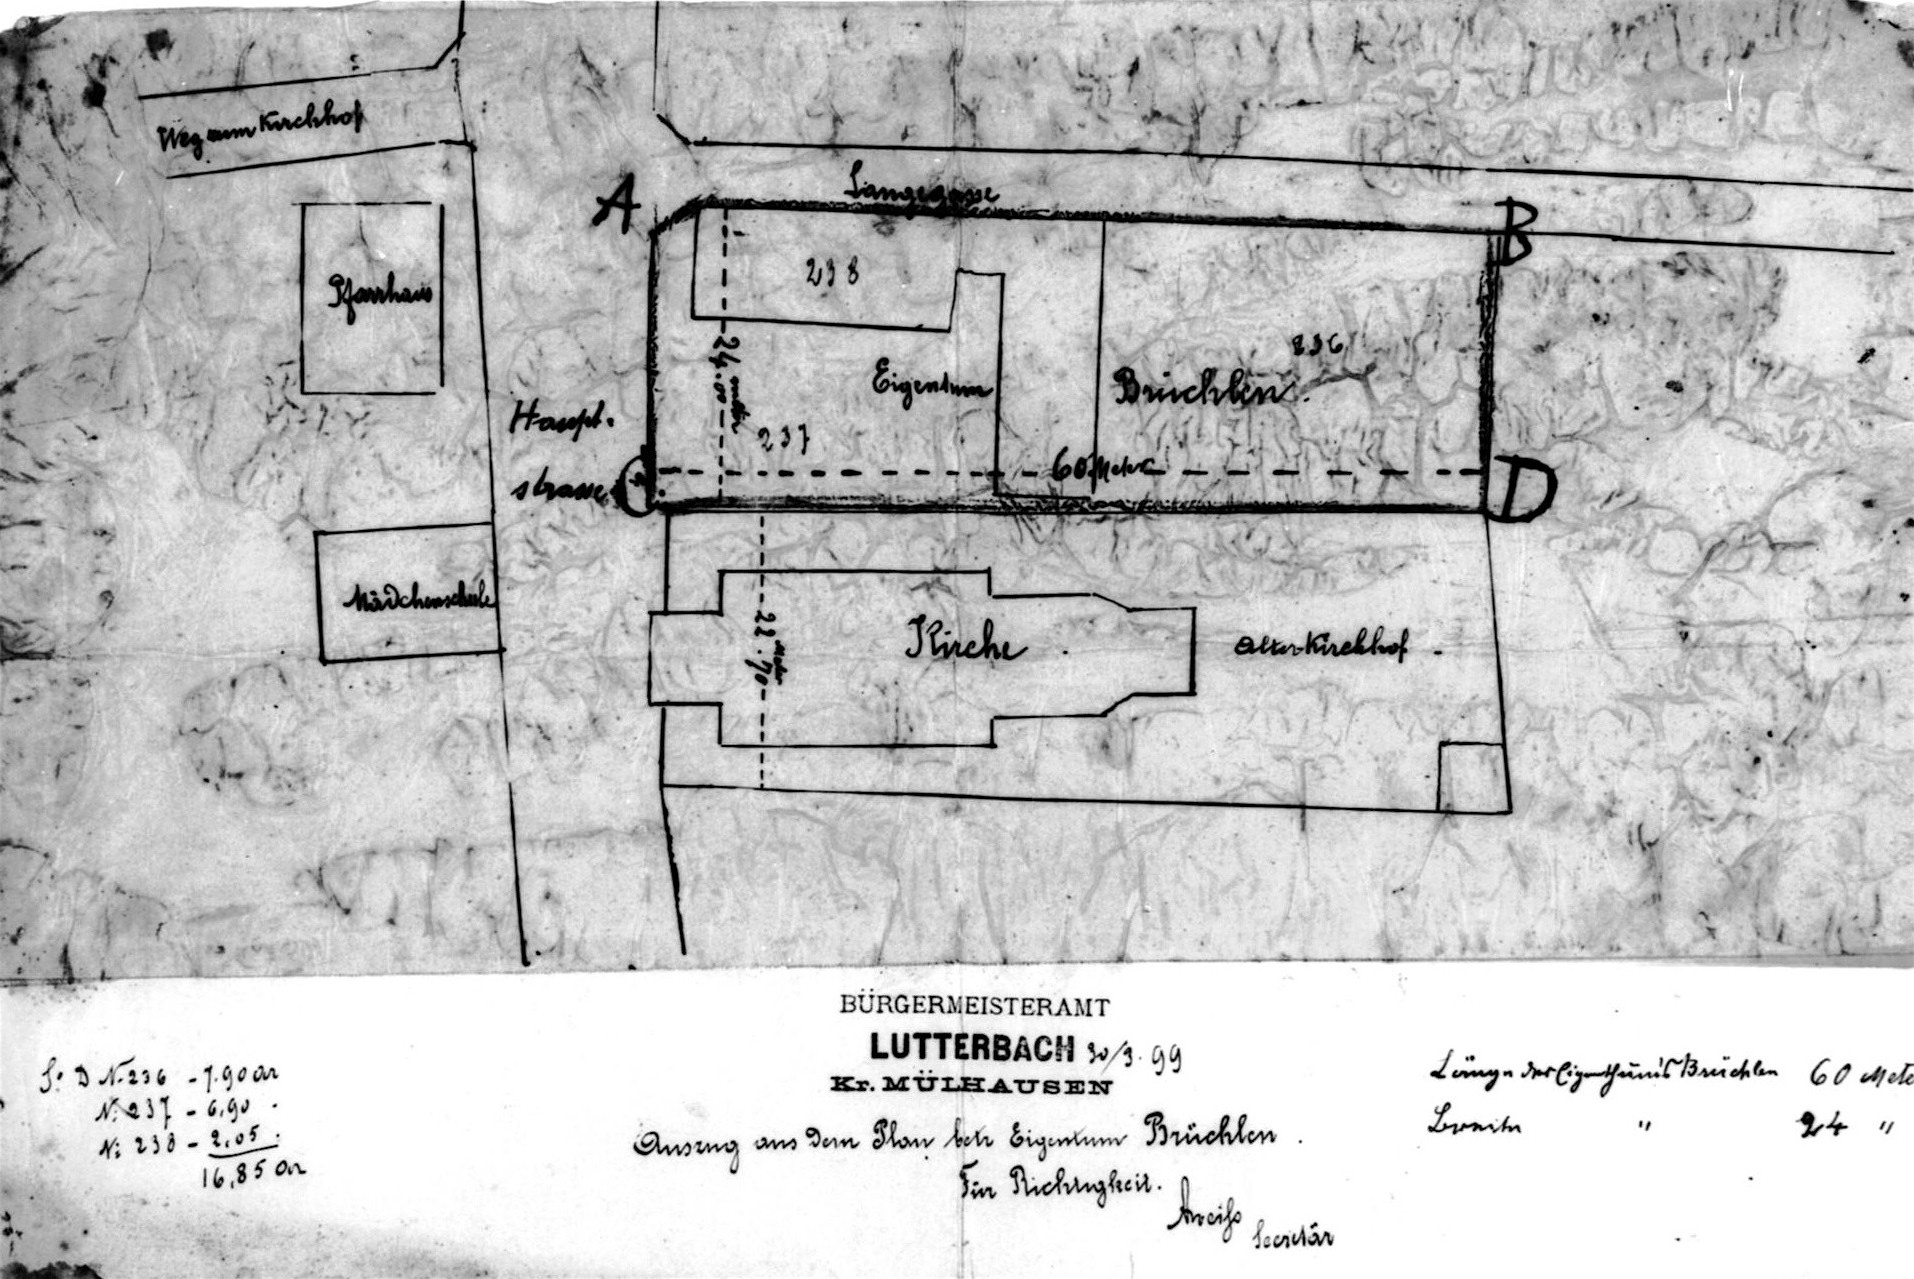 Weg zum Kirchhof
Langegasse
A
B
238
Pfarrhaus
24.00 meter
236
Eigentum
Brüchlen.
Haupt-
237
strasse
60 Meter
D
Mädchenschule
22.70 Meter
Kirche
Alter Kirchhof
BÜRGERMEISTERAMT
LUTTERBACH 30/3.99
Kr. MÜLHAUSEN
S. D N. 236 - 7.90 ar
N: 237 - 6,90
N: 238 - 2.05
16,85 ar
Länge des Eigenthum's Brüchlen 60 Mete
Breite " 24 "
Auszug aus dem Plan betr Eigentum Brüchlen.
Für Richtigkeit.
Secretär